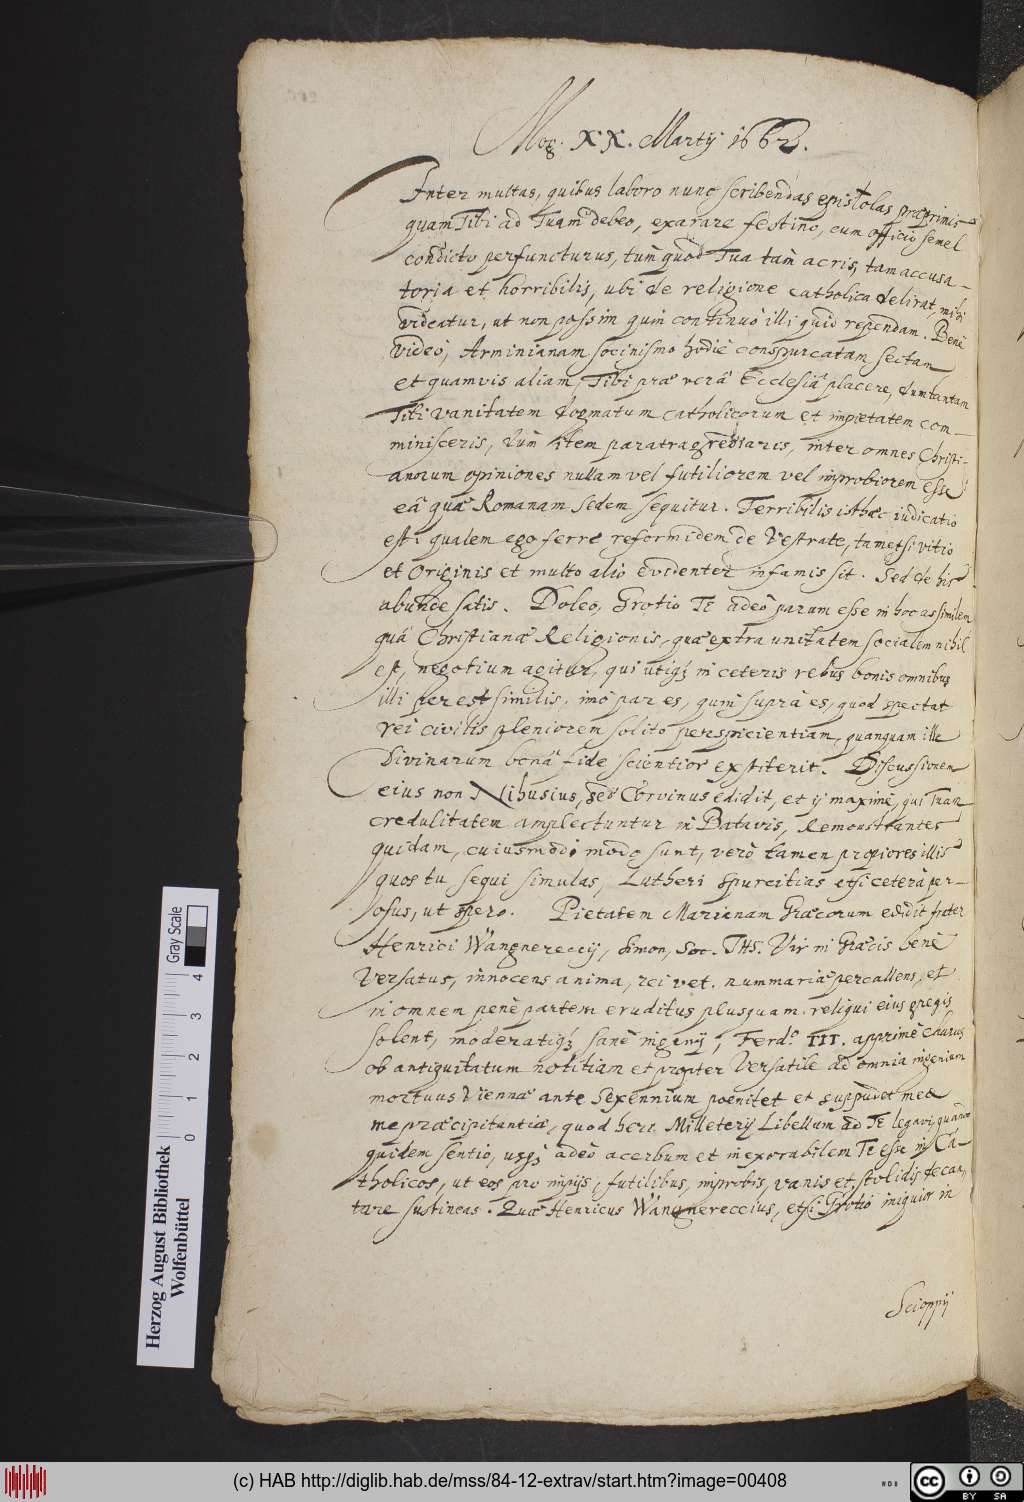 Mog. XX. Martij 1662.
Inter multas, quibus laboro nunc scribendas epistolas præprimis
quam Tibi ad Tuam debeo, exarare festino, cum officio semel
condicto perfuncturus, tùm quod Tua tam acris, tam accusa-
toria et horribilis, ubi de religione catholica delirat, mihi
videatur, ut non possim quin continuò illi quid rependam. Benè
video, Arminianam socinismo hodiè conspurcatam sectam
et quamvis aliam, Tibi præ verâ Ecclesiâ placere, dum tantam
Tibi vanitatem dogmatum catholicorum et impietatem com-
minisceris, dùm item paratragrediaris, inter omnes Christi-
anorum opiniones nullam vel futiliorem vel improbiorem esse
eâ quæ Romanam sedem sequitur. Terribilis isthæc iudicatio
est: qualem ego ferre reformidem de Vestrate, tametsi vitio
et Originis et multo alio evidenter infamis sit. Sed de his
abunde satis. Doleo, Grotio Te adeò parum esse in hoc assimilem
quâ Christianæ Religionis, quæ extra unitatem socialem nihil
est, negotium agitur, qui utiq; in ceteris rebus bonis omnibus
illi per est similis, imò par es, quin suprà es, quod spectat
rei civilis pleniorem solito perspicientiam, quanquam ille
Divinarum bonâ fide scientior exstiterit. Discussionem
eius non Nihusius, sed Corvinus edidit, et ij maximè, qui Tuam
credulitatem amplectuntur in Batavis, Remonstrantes
quidam, cuiusmodi modo sunt, verò tamen propiores illis
quos tu sequi simulas, Lutheri spurcitias etsi cetera per-
osus, ut spero. Pietatem Marianam Græcorum edidit frater
Henrici Wangnereccij, Simon, Soc. IHS. Vir in Græcis benè
versatus, innocens anima, rei vet. nummariæ percallens, et
in omnem penè partem eruditus plusquam reliqui eius gregis
solent, moderatiq; sanè ingenij, Ferd.º III. apprimè charus
ob antiquitatum notitiam et propter versatile ad omnia ingenium
mortuus Viennæ ante sexennium. pœnitet et suppudet meæ
me præcipitantiæ, quod heri Milleterij Libellum ad Te legavi, quando
quidem sentio, usq; adeò acerbum et inexorabilem Te esse in Ca-
tholicos, ut eos pro impijs, futilibus, improbis, vanis et stolidis decan-
tare sustineas. Quæ Henricus Wangnereccius, etsi Grotio iniquior in
Scioppij
Herzog August Bibliothek
Wolfenbüttel
Gray Scale
0 1 2 3 4
(c) HAB http://diglib.hab.de/mss/84-12-extrav/start.htm?image=00408
WDB
cc BY SA